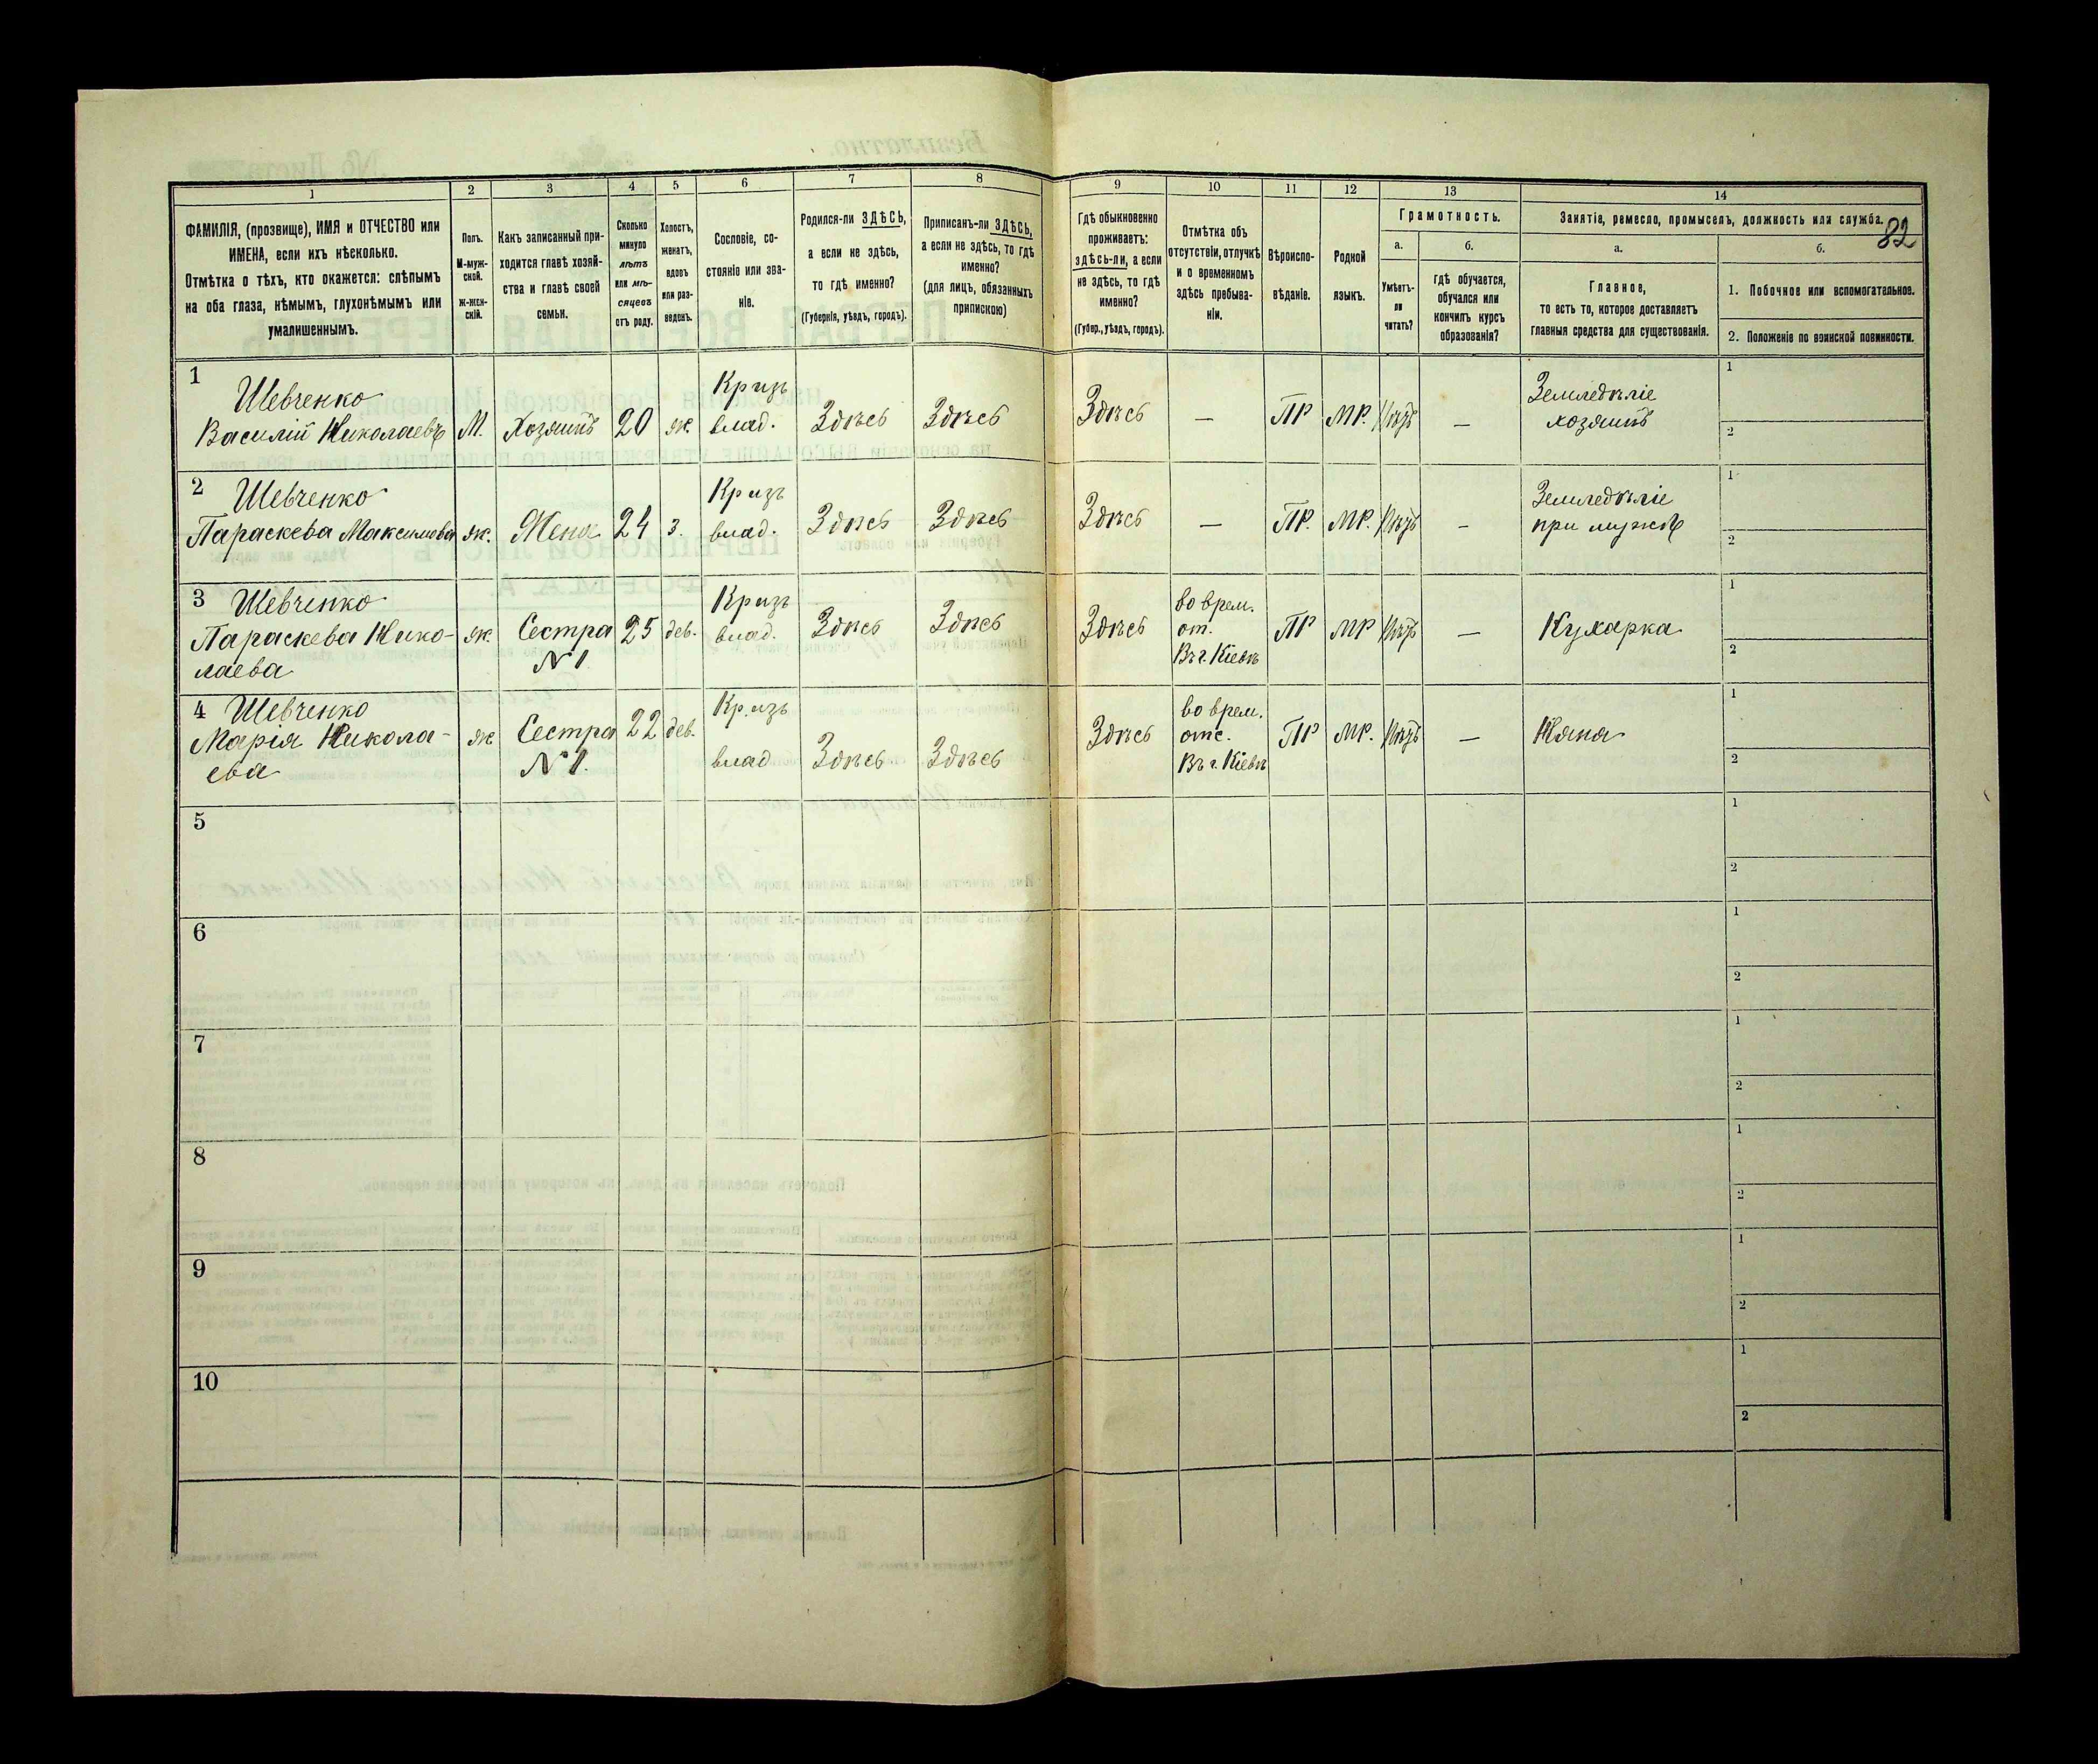 1 2 3 4 5 6 7 8 9 10 11 12 13 14
82
ФАМИЛІЯ, (прозвище), ИМЯ и ОТЧЕСТВО или
ИМЕНА, если ихъ нѣсколько.
Отмѣтка о тѣхъ, кто окажется: слѣпымъ
на оба глаза, нѣмымъ, глухонѣмымъ или
умалишеннымъ.
Полъ.
М-муж-
ской.
Ж-жен-
скій.
Какъ записанный при-
ходится главѣ хозяй-
ства и главѣ своей
семьи.
Сколько
минуло
лѣтъ
или мѣ-
сяцевъ
отъ роду.
Холостъ,
женатъ,
вдовъ
или раз-
веденъ.
Сословіе, со-
стояніе или зва-
ніе.
Родился-ли ЗДѢСЬ,
а если не здѣсь,
то гдѣ именно?
(Губернія, уѣздъ, городъ).
Приписанъ-ли ЗДѢСЬ,
а если не здѣсь, то гдѣ
именно?
(для лицъ, обязанныхъ
припискою)
Гдѣ обыкновенно
проживаетъ:
здѣсь-ли, а если
не здѣсь, то гдѣ
именно?
(Губер., уѣздъ, городъ).
Отмѣтка объ
отсутствіи, отлучкѣ
и о временномъ
здѣсь пребыва-
ніи.
Вѣроиспо-
вѣданіе.
Родной
языкъ.
Грамотность.
а.
Умѣетъ-
ли
читать?
б.
гдѣ обучается,
обучался или
кончилъ курсъ
образованія?
Занятіе, ремесло, промыселъ, должность или служба.
а.
Главное,
то есть то, которое доставляетъ
главныя средства для существованія.
б.
1. Побочное или вспомогательное.
2. Положеніе по воинской повинности.
1
Шевченко
Василій Николаевъ М. Хозяинъ 20 ж. Кр изъ влад. Здѣсь Здѣсь Здѣсь — ПР МР. Нѣтъ — Земледѣліе
хозяинъ
1
2
2
Шевченко
Параскева Максимова ж. Жена 24 з. Кр изъ влад. Здѣсь Здѣсь Здѣсь — ПР. МР. Нѣтъ — Земледѣліе
при мужѣ
1
2
3
Шевченко
Параскева Нико-
лаева
ж. Сестра
N 1
25 дев. Кр изъ
влад. Здѣсь Здѣсь Здѣсь
во врем.
от.
Въ г. Кіевѣ
ПР МР Нѣтъ — Кухарка
1
2
4
Шевченко
Марія Никола-
ева
ж Сестра
N 1.
22 дев. Кр. изъ
влад Здѣсь Здѣсь Здѣсь
во врем.
отс.
Въ г. Кіевѣ
ПР МР. Нѣтъ — Няна
1
2
5
1
2
6
1
2
7
1
2
8
1
2
9
1
2
10
1
2